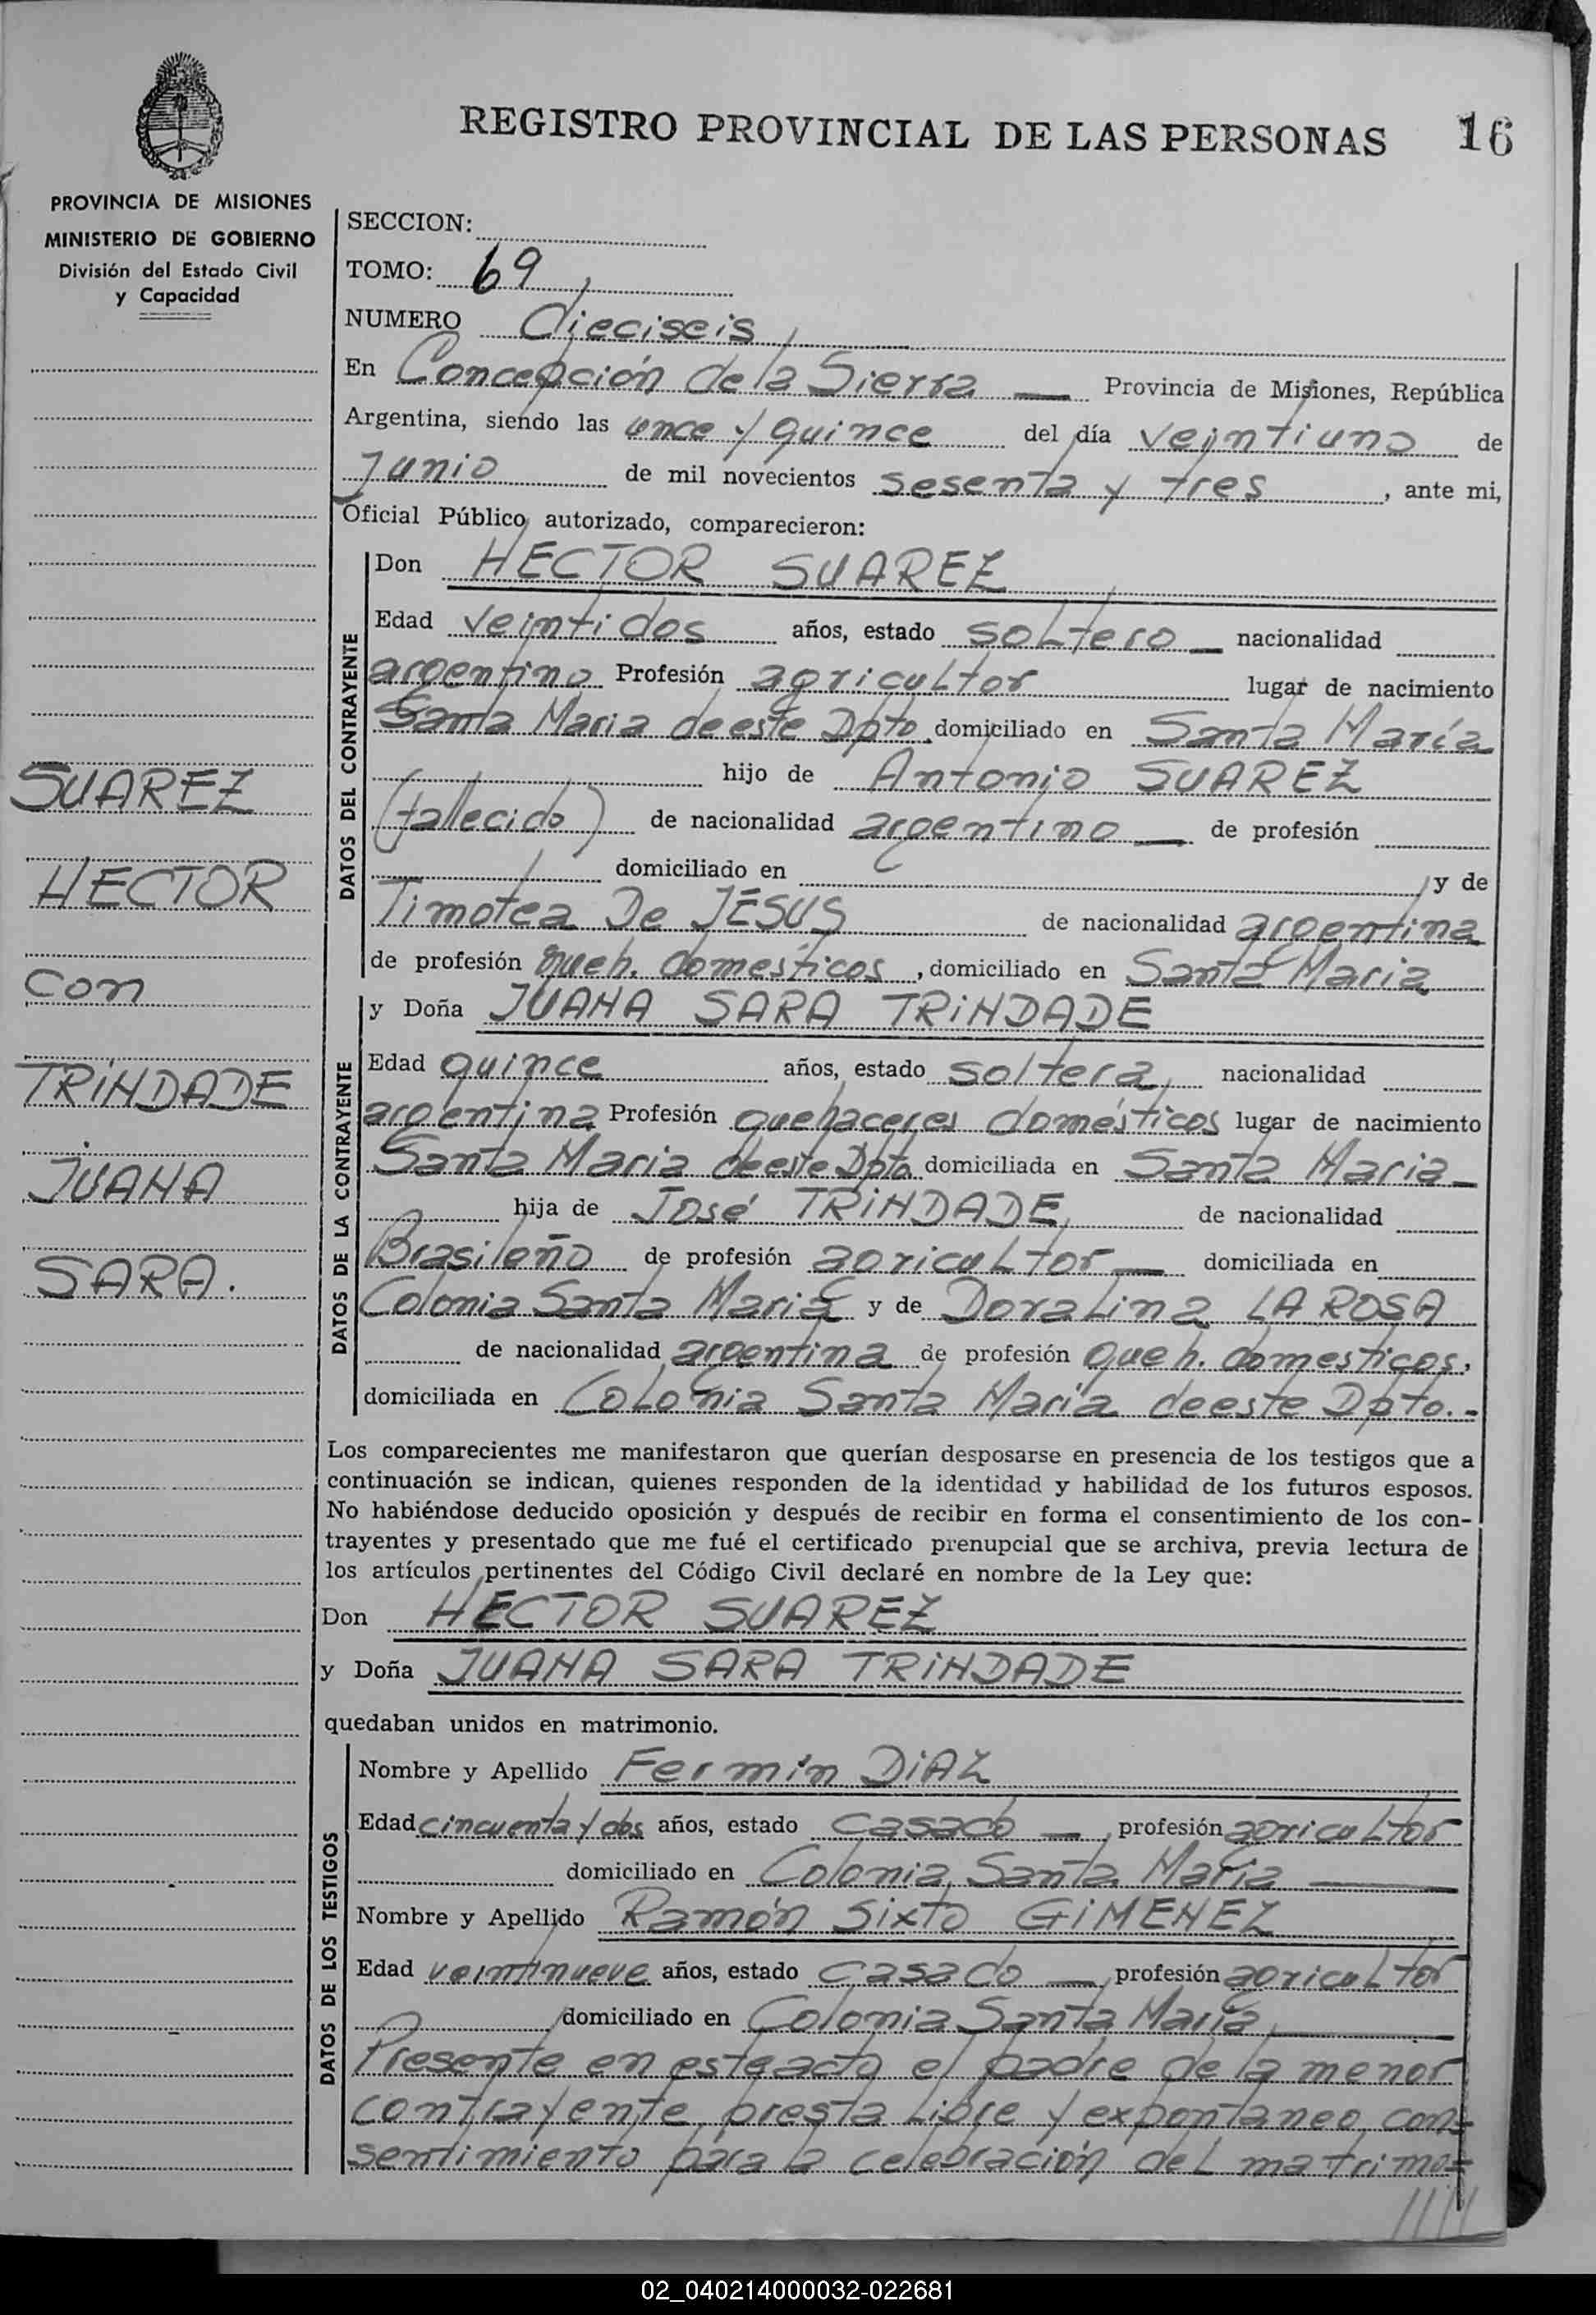 REGISTRO PROVINCIAL DE LAS PERSONAS 16
PROVINCIA DE MISIONES
MINISTERIO DE GOBIERNO
División del Estado Civil
y Capacidad
SUAREZ
HECTOR
con
TRiNDADE
JUANA
SARA.
SECCION:
TOMO: 69
NUMERO Dieciseis
En Concepción de la Sierra — Provincia de Misiones, República
Argentina, siendo las once y quince del día veintiuno de
Junio de mil novecientos sesenta y tres, ante mi,
Oficial Público autorizado, comparecieron:
DATOS DEL CONTRAYENTE
Don HECTOR SUAREZ
Edad veintidos años, estado soltero — nacionalidad
argentino Profesión agricultor lugar de nacimiento
Santa Maria de este Dpto. domiciliado en Santa María
hijo de Antonio SUAREZ
(fallecido) de nacionalidad argentino — de profesión
domiciliado en y de
Timotea De JESUS de nacionalidad argentina
de profesión queh. domésticos, domiciliado en Santa Maria
DATOS DE LA CONTRAYENTE
y Doña JUANA SARA TRiNDADE
Edad quince años, estado soltera, nacionalidad
argentina Profesión quehaceres domésticos lugar de nacimiento
Santa Maria de este Dpto domiciliada en Santa Maria —
hija de José TRiNDADE, de nacionalidad
Brasileño de profesión agricultor — domiciliada en
Colonia Santa Maria y de Doralina LA ROSA
de nacionalidad argentina de profesión queh. domesticos,
domiciliada en Colonia Santa Maria de este Dpto.-
Los comparecientes me manifestaron que querían desposarse en presencia de los testigos que a
continuación se indican, quienes responden de la identidad y habilidad de los futuros esposos.
No habiéndose deducido oposición y después de recibir en forma el consentimiento de los con-
trayentes y presentado que me fué el certificado prenupcial que se archiva, previa lectura de
los artículos pertinentes del Código Civil declaré en nombre de la Ley que:
Don HECTOR SUAREZ
y Doña JUANA SARA TRiNDADE
quedaban unidos en matrimonio.
DATOS DE LOS TESTIGOS
Nombre y Apellido Fermín DiAZ
Edad cincuenta y dos años, estado casado — profesión agricultor
domiciliado en Colonia Santa Maria —
Nombre y Apellido Ramón Sixto GiMENEZ
Edad veintinueve años, estado casado — profesión agricultor
domiciliado en Colonia Santa Maria —
Presente en este acto el padre de la menor
contrayente, presta libre y expontaneo con=
sentimiento para la celebración del matrimo=
////
02_040214000032-022681